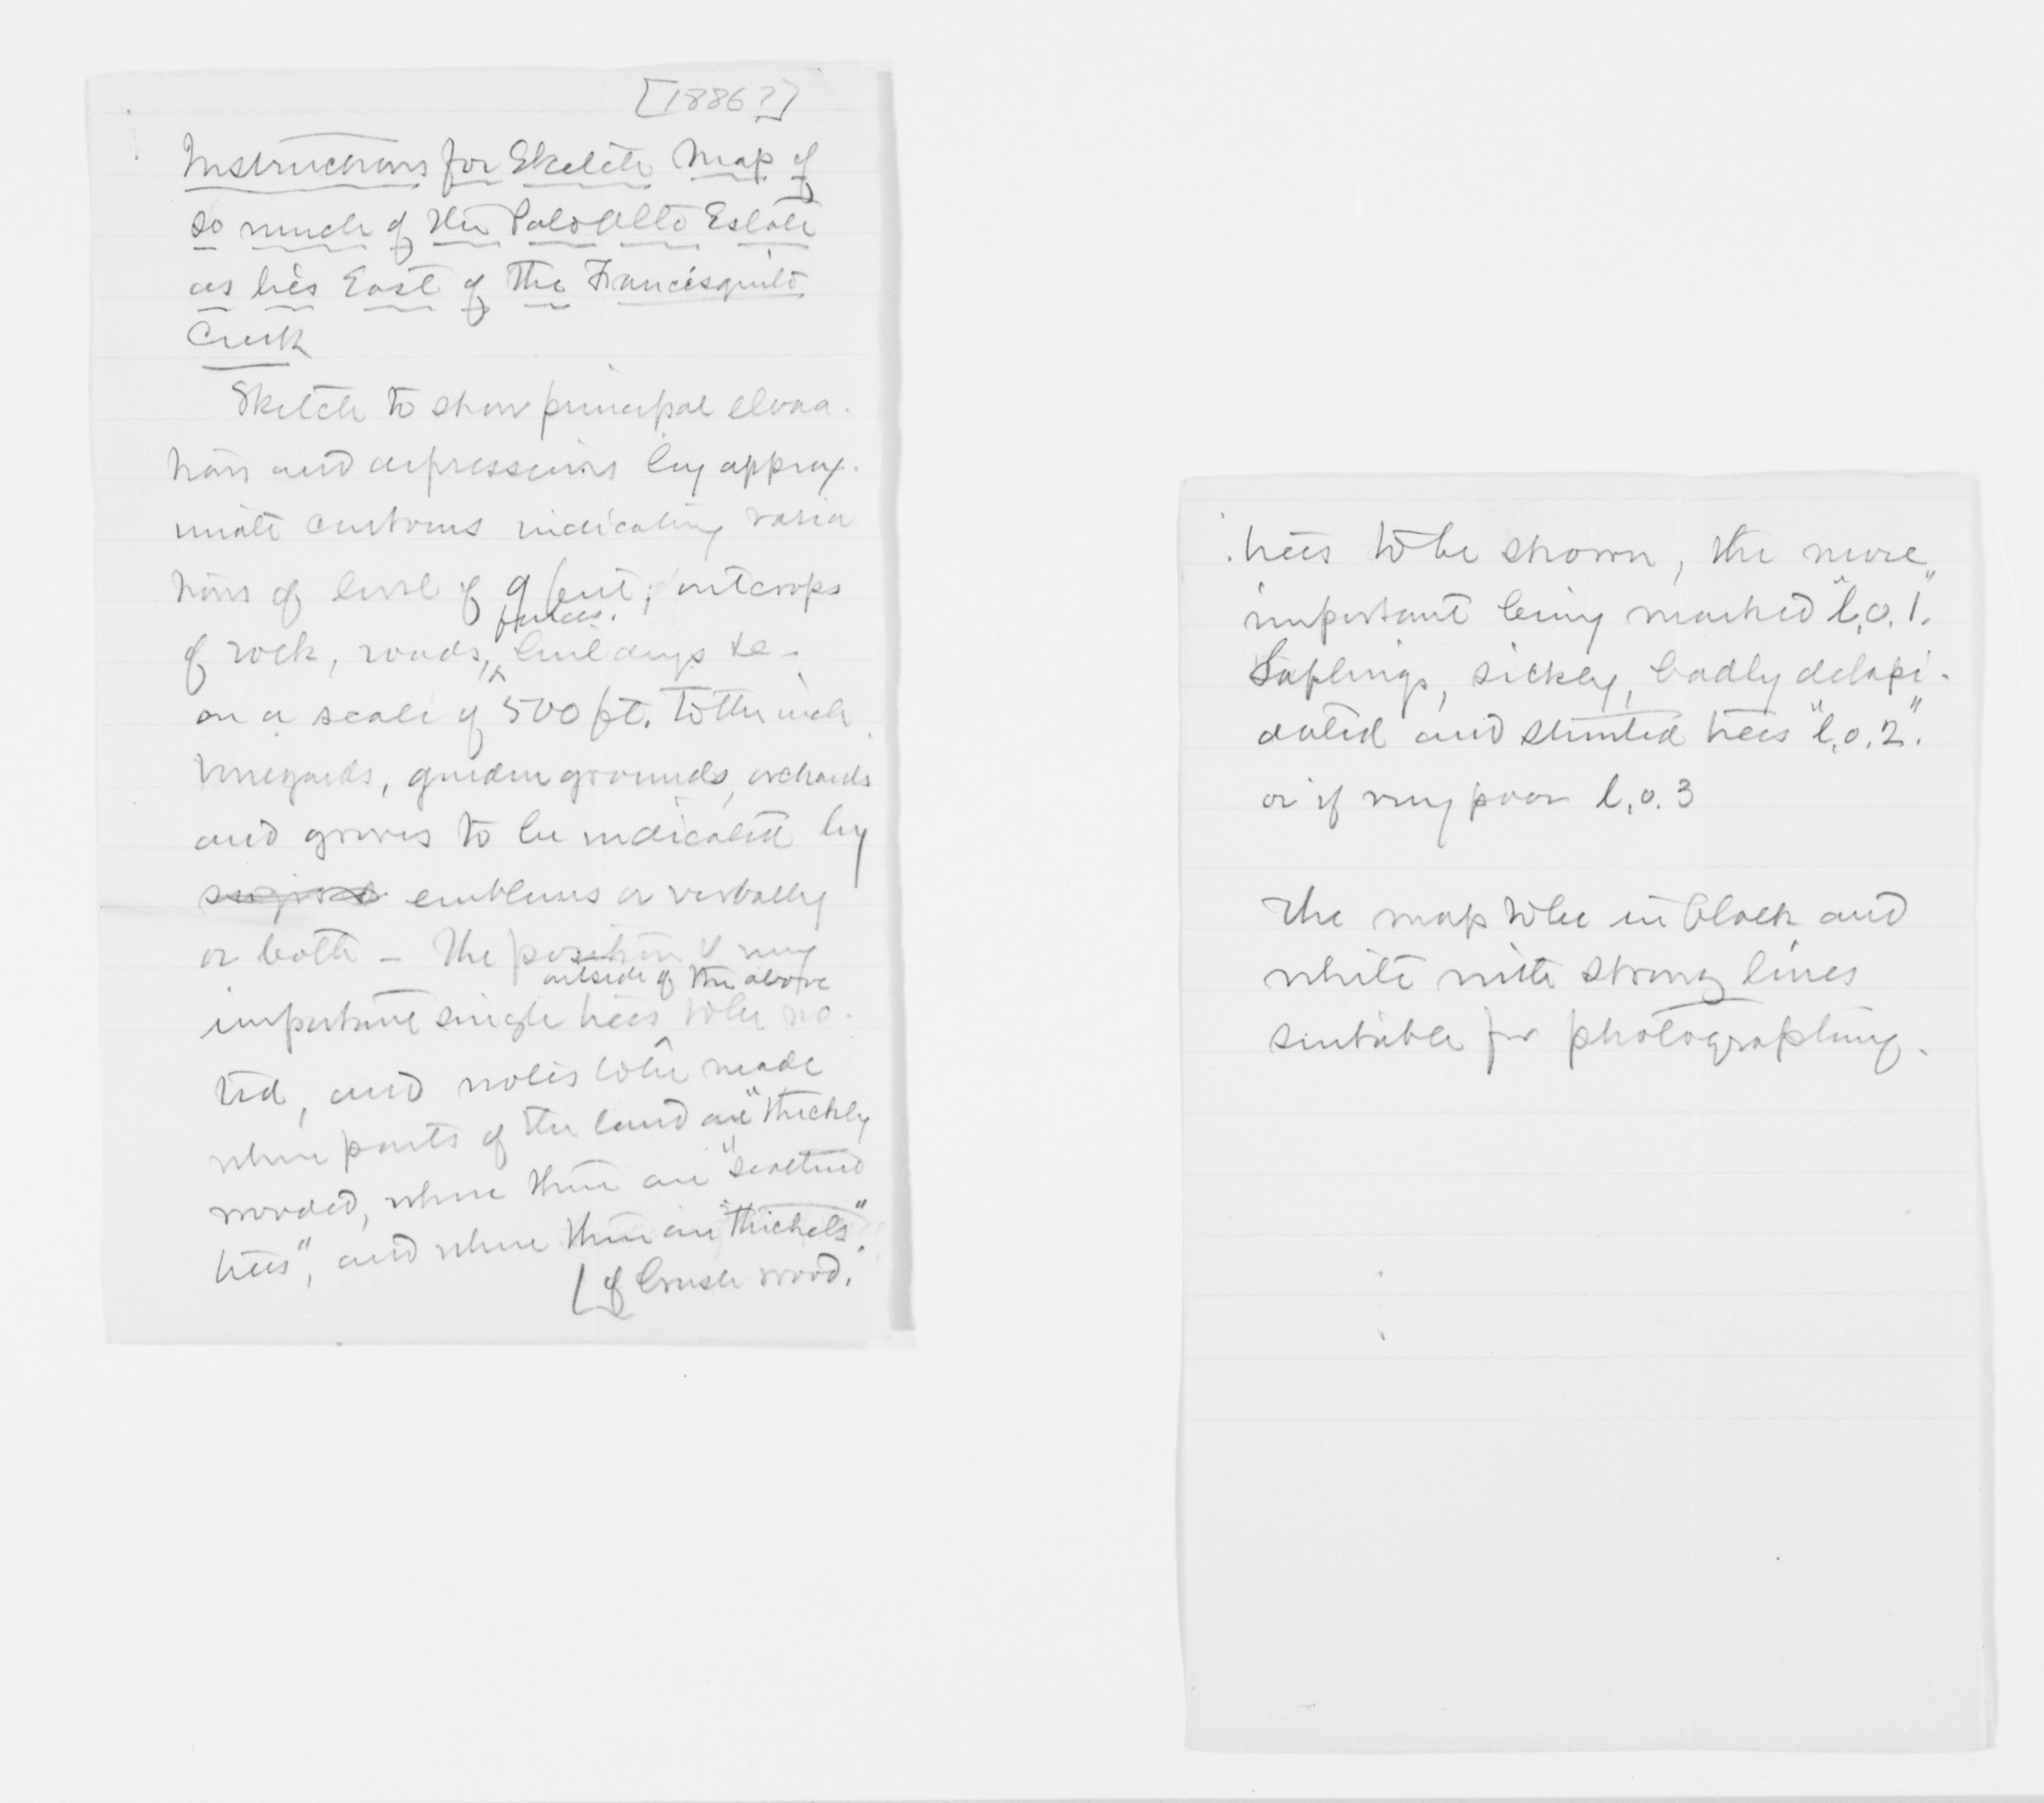 [1886?]
Instructions for Sketch Map of
so much of the Palo Alto Estate
as lies East of the Francisquito
Creek
Sketch to show principal eleva-
tions and depressions by approx-
imate contours indicating varia
tions of level of 9 feet; outcrops
fences.
of rock, roads, ^ buildings &c -
on a scale of 500 ft. to the inch
Vineyards, garden grounds, orchards
and groves to be indicated by
emblems or verbally
or both - The position of very
outside of the above
important single trees ^ to be no-
ted, and notes to be made
where parts of the land are "thickly
wooded," where there are "scattered
trees", and where there are "thickets".
of brush wood."
trees to be shown, the more
important being marked "l.o.1."
Saplings, sickly, badly delapi-
dated and stunted trees "l.o.2".
or if very poor l.o.3
The map to be in black and
white with strong lines
suitable for photographing.